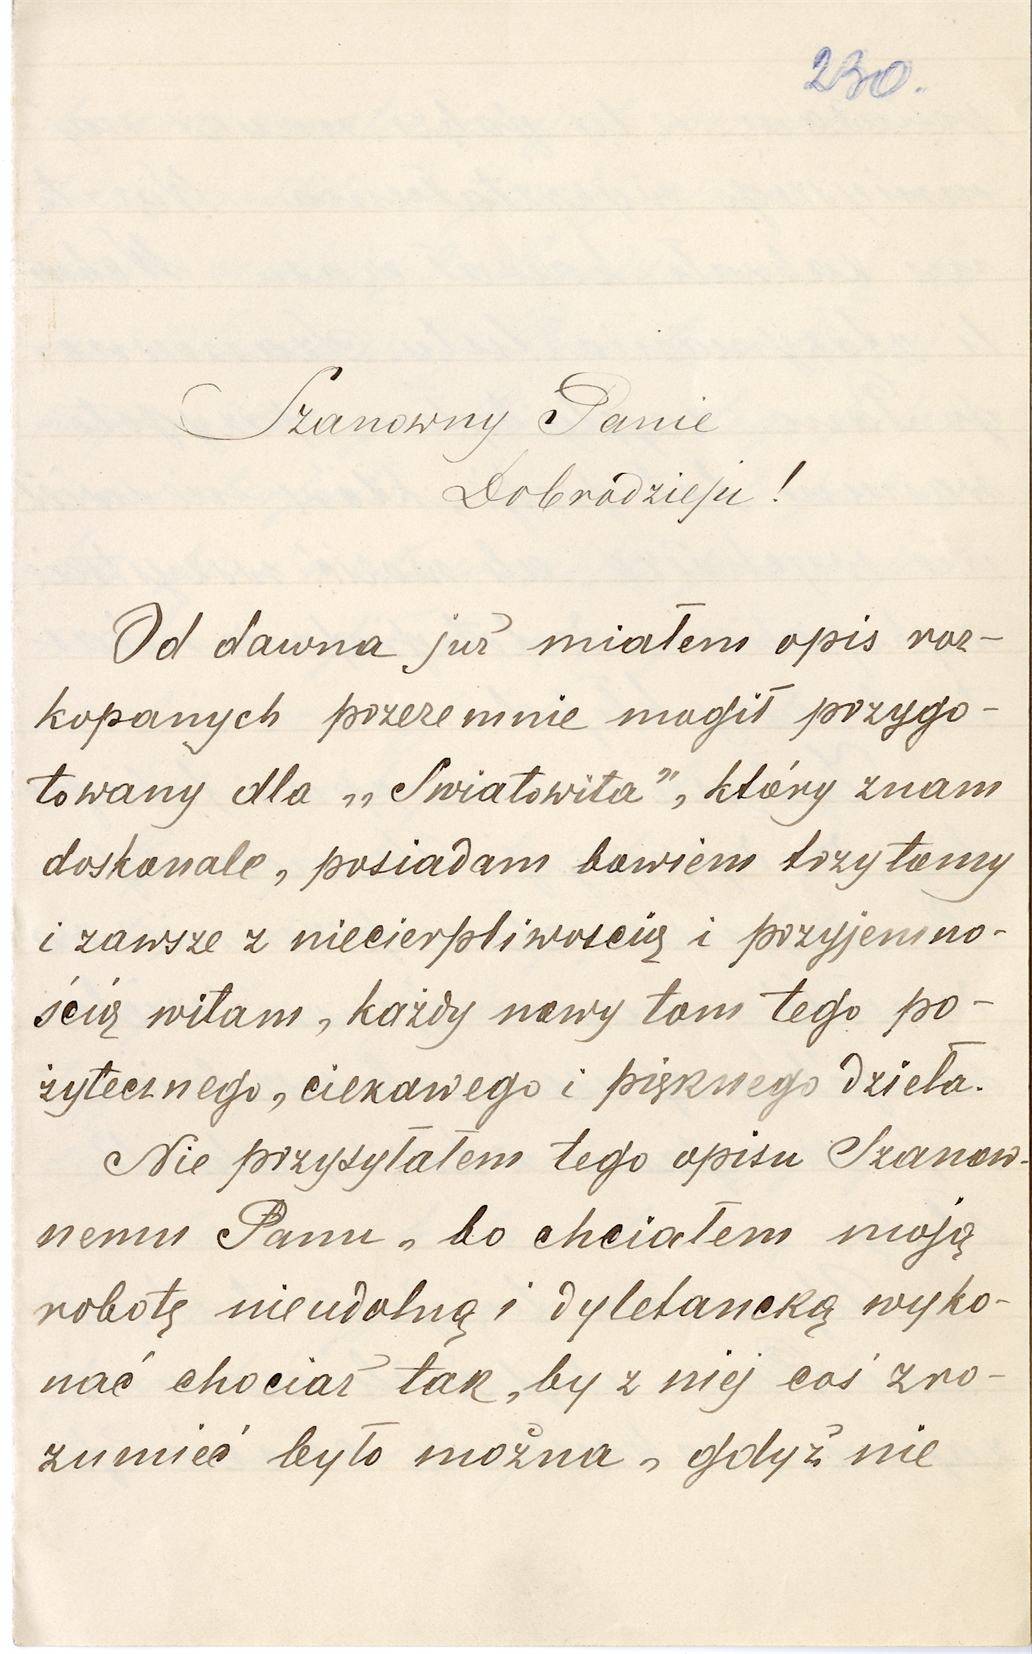 230.
Szanowny Panie
Dobrodzieju!
Od dawna już miałem opis roz-
kopanych przezemnie mogił przygo-
towany dla „Swiatowita”, który znam
doskonale, posiadam bowiem trzy tomy
i zawsze z niecierpliwoscią i przyjemno-
ścią witam, każdy nowy tom tego po-
żytecznego, ciekawego i pięknego dzieła.
Nie przysyłałem tego opisu Szanow-
nemu Panu, bo chciałem moją
robotę nieudolną i dyletancką wyko-
nać chociaż tak, by z niej coś zro-
zumieć było można, gdyż nie